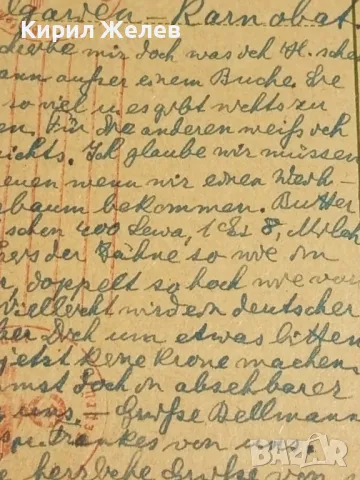 Кирил Желев
lgarien – Karnobat.
chreibe mir doch was ich H. sche
kann außer einem Buche. Sie
so viel u. es gibt nichts zu
en. Für die anderen weiß ich
nichts. Ich glaube wir müssen
euen wenn wir einen Weih-
baum bekommen. Butter
schen 400 Lewa, 1 Ei 8, Milch
ers der Zähne so wie in
r, doppelt so hoch wie vor
Vielleicht wird ein deutscher
her Dich um etwas bitten
jetzt keine Krone machen
mmst doch in absehbarer
uns. – Grüße Dellmann
s u. Frankes von uns.
e herzliche Grüße von
BAZAR